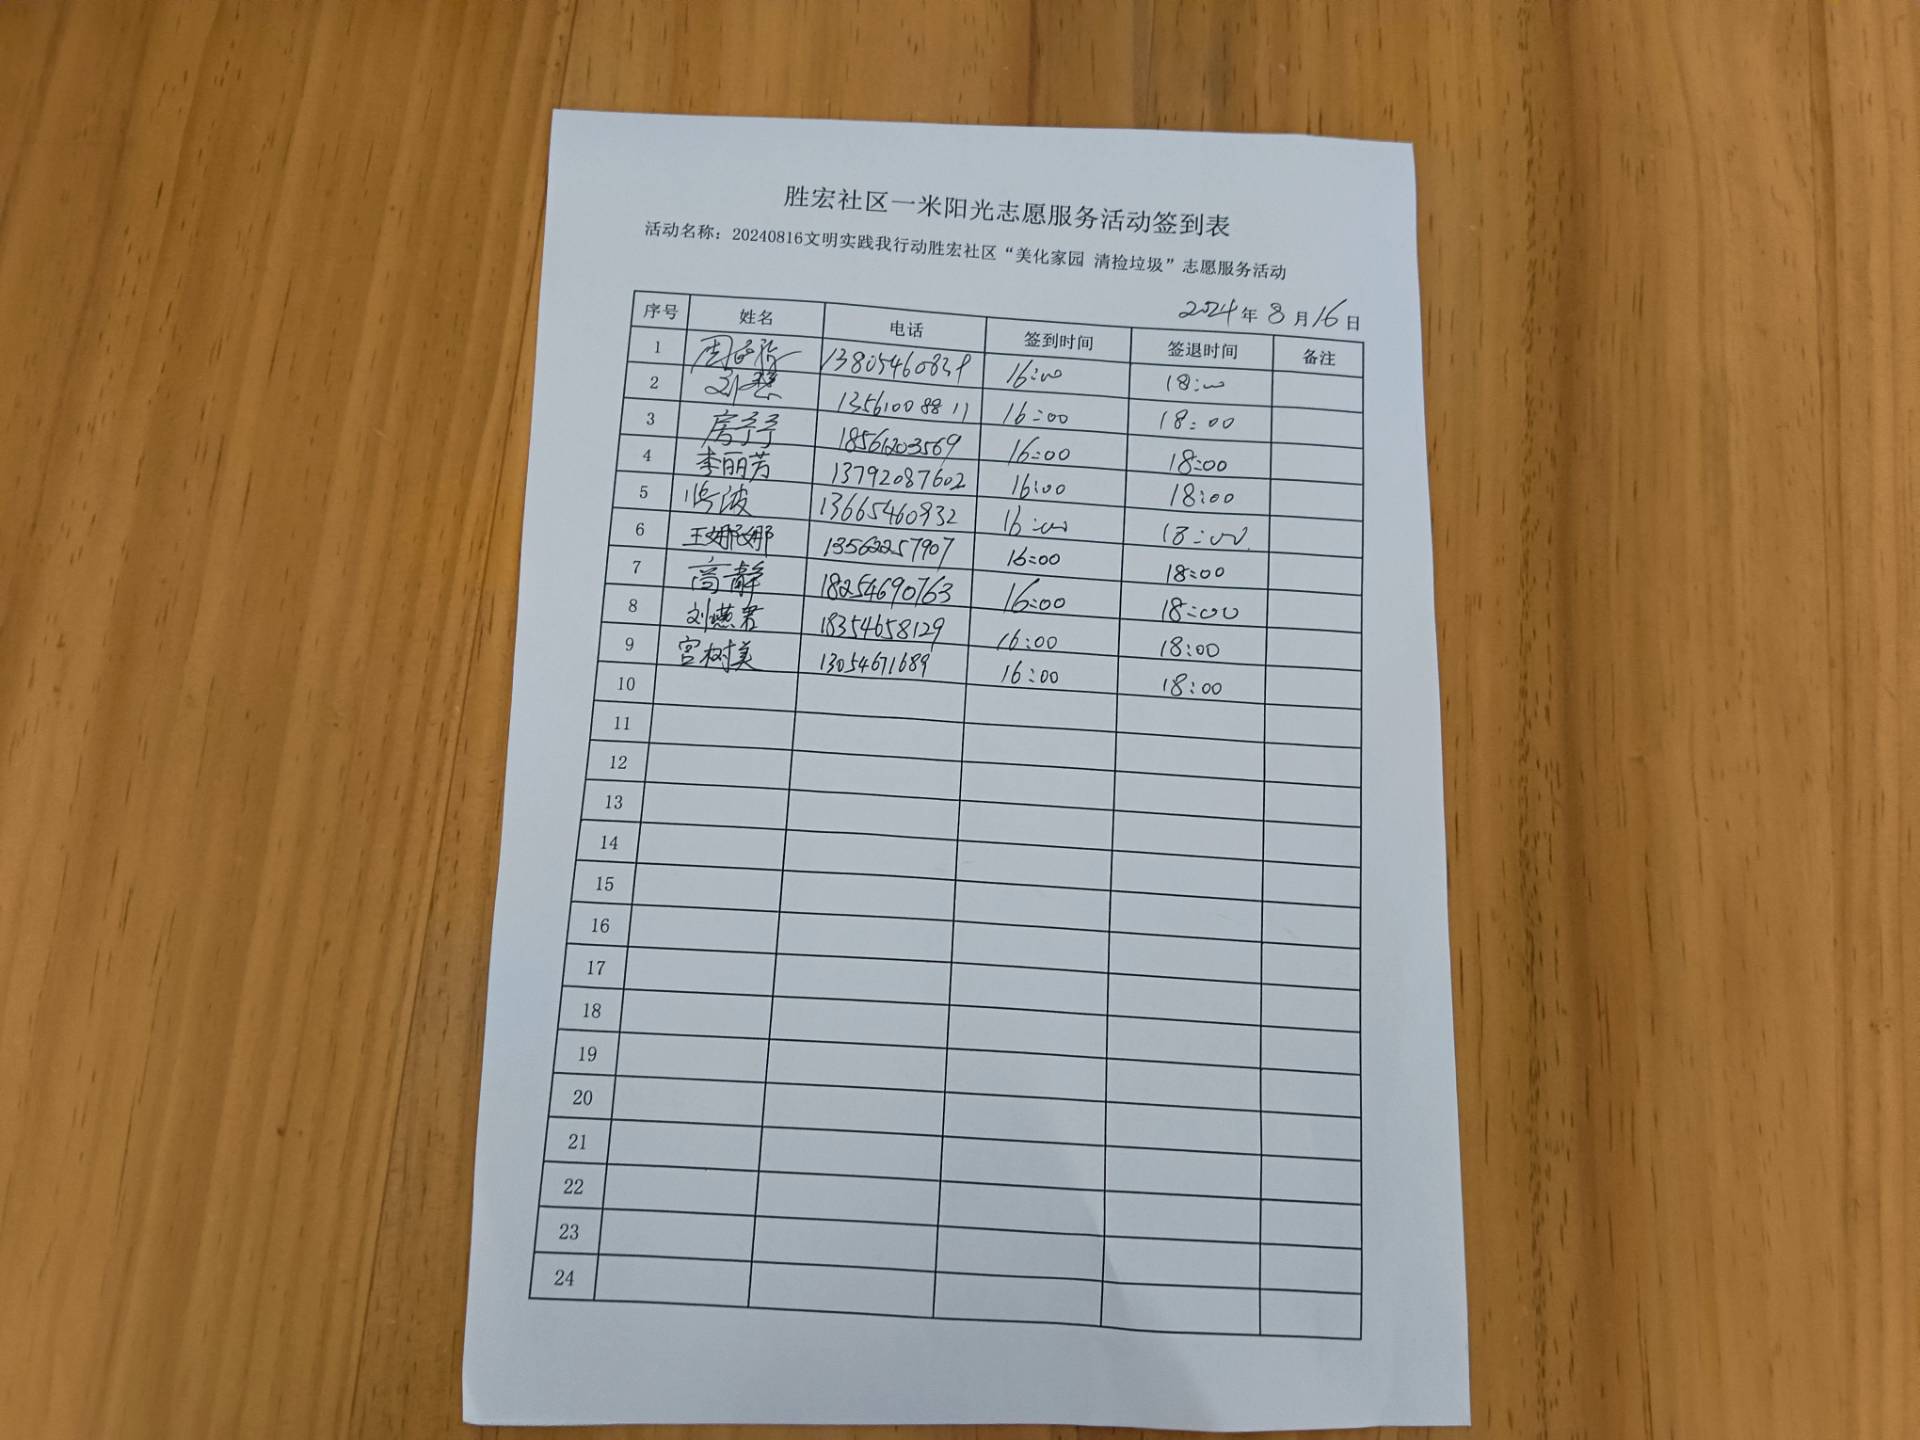 胜宏社区一米阳光志愿服务活动签到表
活动名称：20240816文明实践我行动胜宏社区“美化家园 清捡垃圾”志愿服务活动
2024年8月16日
序号 姓名 电话 签到时间 签退时间 备注
1 13805460839 16:00 18:00
2 刘慧 13561008811 16:00 18:00
3 房予予 18561203569 16:00 18:00
4 李丽芳 13792087602 16:00 18:00
5 13665460932 16:00 18:00
6 王娜娜 13562257907 16:00 18:00
7 高静 18254690763 16:00 18:00
8 刘燕君 18354658129 16:00 18:00
9 宫树美 13054671689 16:00 18:00
10
11
12
13
14
15
16
17
18
19
20
21
22
23
24